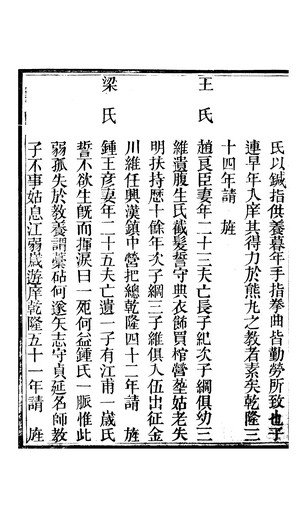 氏以鍼指供養暮年手指拳曲皆勤勞所致也子
連早年入庠其得力於熊九之教者素矣乾隆三
十四年請旌
王氏
趙良臣妻年二十三夫亡長子紀次子綱俱幼三
維遺腹生氏截髮誓守典衣飾買棺營葬姑老失
明扶持歷十餘年次子綱三子維俱入伍出征金
川維任興漢鎮中營把總乾隆四十二年請旌
梁氏
鍾王彥妻年二十二夫亡遺一子有江甫一歲氏
誓不欲生旣而揮淚曰一死何益鍾氏一脈惟此
弱孤失於教養謂藁砧何遂矢志守貞延名師教
子不事姑息江弱歲遊庠乾隆五十一年請旌